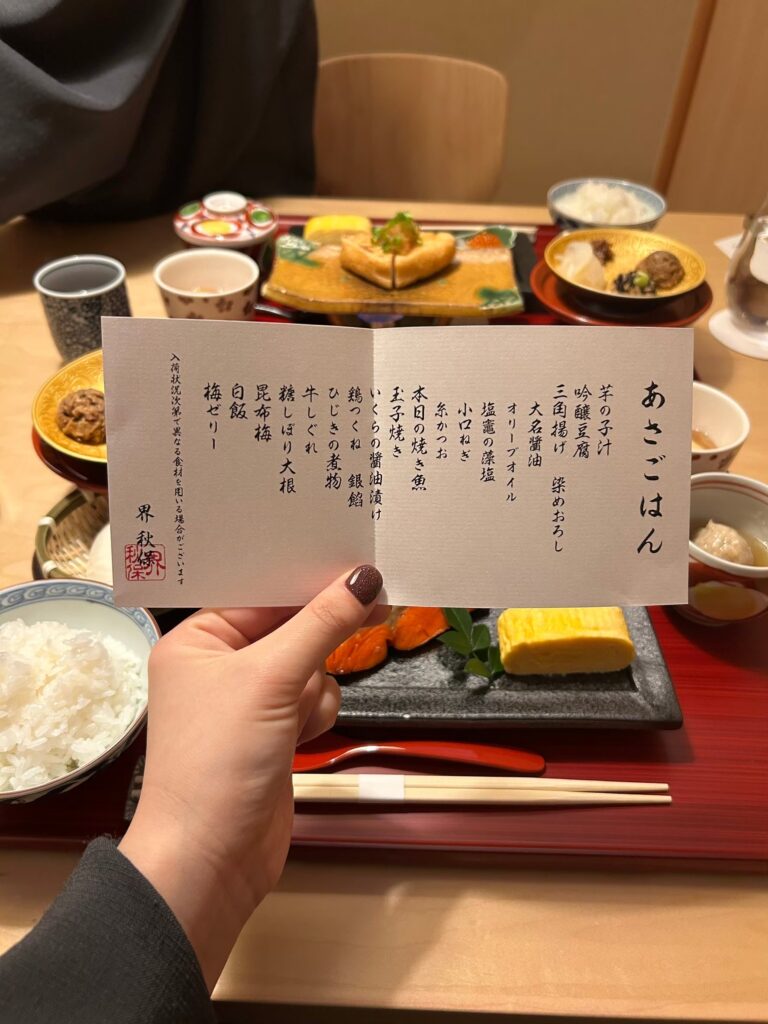 あさごはん
芋の子汁
吟醸豆腐
三角揚げ　染めおろし
大名醬油
オリーブオイル
塩竈の藻塩
小口ねぎ
糸かつお
本日の焼き魚
玉子焼き
いくらの醬油漬け
鶏つくね　銀餡
ひじきの煮物
牛しぐれ
糖しぼり大根
昆布梅
白飯
梅ゼリー
入荷状況次第で異なる食材を用いる場合がございます
界 秋保
界秋保